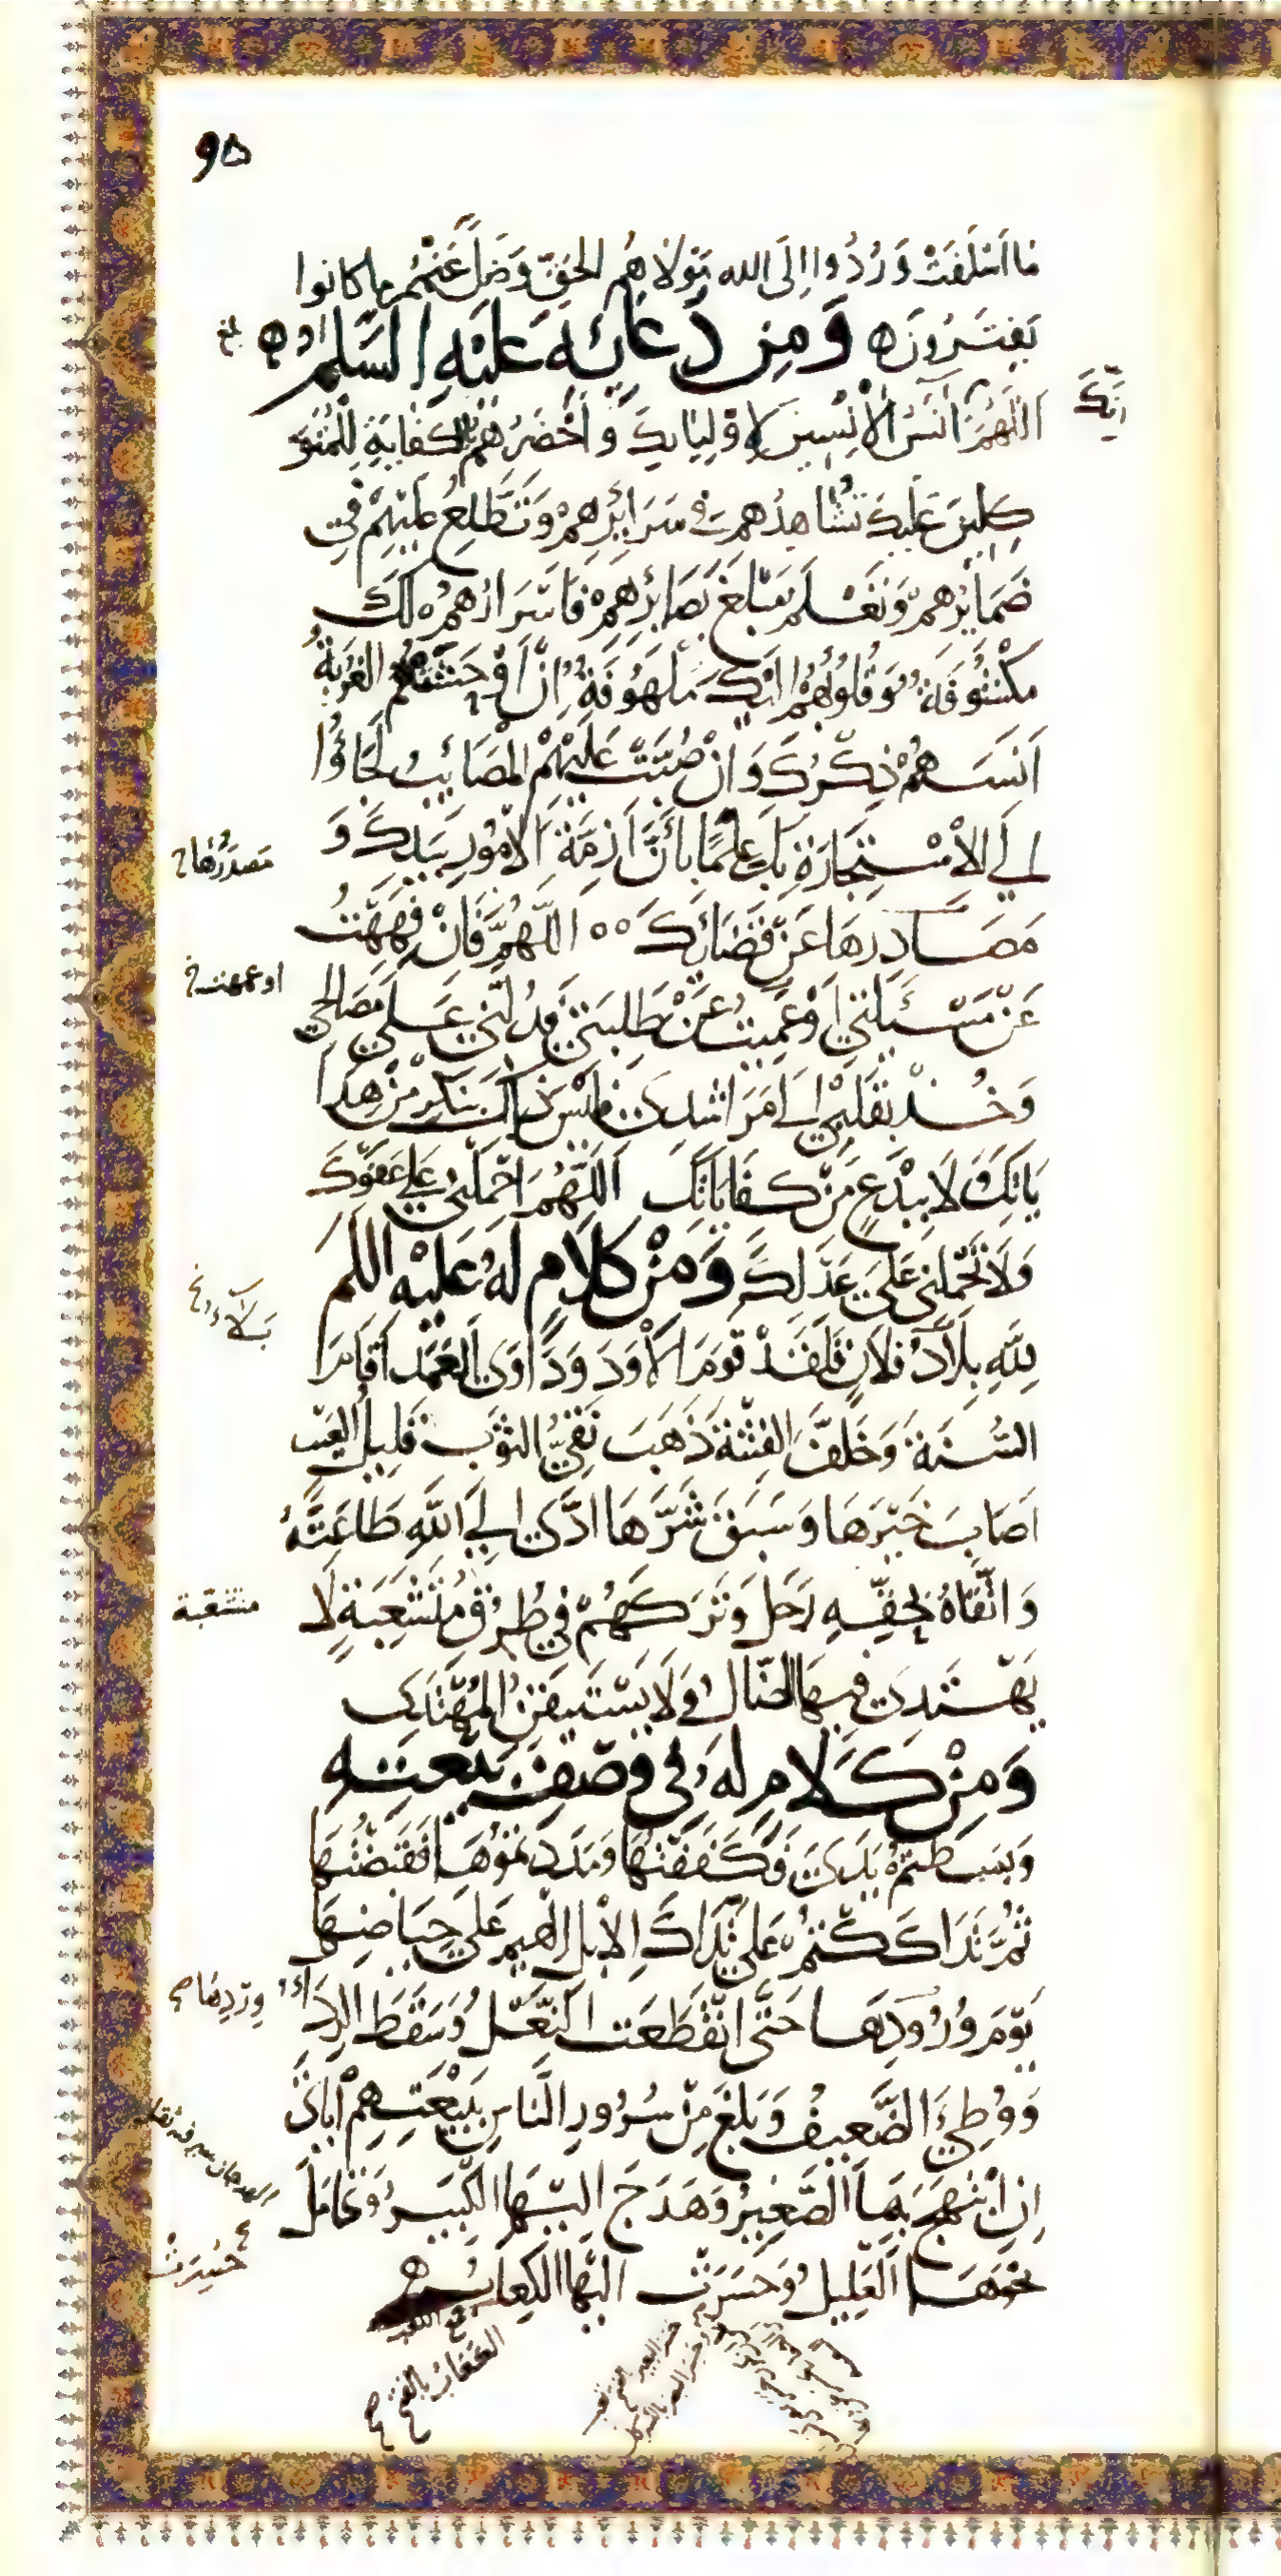 ٩٥
مَا اَسْلَفَتْ وَرُدُّوا اِلَى الله مَوْلاهُمُ الحَقِّ وَضَلَّ عَنْهُمْ ما كانوا
يَفْتَرُونَ ه وَمِن دُعَائِه عَلَيْهِ السَّلم
اِنَّكَ
اَللّهُمَّ آنَسُ الْآنِسِينَ لِاَوْلِيَائِكَ وَاَحْضَرُهُمْ بِالْكِفَايَةِ لِلْمُتَوَ
كِلِينَ عَلَيْكَ تُشَاهِدُهُمْ فِي سَرَائِرِهِمْ وَتَطَّلِعُ عَلَيْهِمْ فِي
ضَمَائِرِهِمْ وَتَعْلَمُ مَبْلَغَ بَصَائِرِهِمْ فَاَسْرَارُهُمْ لَكَ
مَكْشُوفَةٌ وَقُلُوبُهُمْ اِلَيْكَ مَلْهُوفَةٌ اِنْ اَوْحَشَتْهُمُ الغُرْبَةُ
اَنَسَهُمْ ذِكْرُكَ وَاِنْ صُبَّتْ عَلَيْهِمْ الْمَصَائِبُ لَجَاؤُا
اِلَى الْاِسْتِجَارَةِ بِكَ عِلْمًا بِاَنَّ اَزِمَّةَ الْاُمُورِ بِيَدِكَ وَ
مَصدَرُها خ
مَصَادِرهَا عَنْ قَضَائِكَ ه ه اَللّهُمَّ فَاِنْ فَهِهْتُ
او عمهت خ
عَنْ مَسْئَلَتِي اَوْ عَمِيتُ عَنْ طَلِبَتِي فَدُلَّنِي عَلَى مَصَالِحِي
وَخُذْ بِقَلْبِي اِلَى مَرَاشِدِي فَلَيْسَ ذَاكَ بِنُكْرٍ مِنْ هِدَا
يَاتِكَ وَلَا بِبِدْعٍ مِنْ كِفَايَاتِكَ اَللّهُمَّ احْمِلْنِي عَلَى عَفْوِكَ
وَلَا تَحْمِلْنِي عَلَى عَدْلِكَ وَمِنْ كَلَامٍ لَهُ عَلَيْهِ اللسَّلم
بَلَاءُ خ
لِلّهِ بِلَادُ فُلَانٍ فَلَقَدْ قَوَّمَ الْاَوَدَ وَدَاوَى العَمَدَ اَقَامَ
السُّنَّةَ وَخَلَّفَ الفِتْنَةَ ذَهَبَ نَقِيَّ الثَّوْبِ قَلِيلَ العَيْب
اَصَابَ خَيْرَهَا وَسَبَقَ شَرَّهَا اَدَّى اِلَى اللّهِ طَاعَتَهُ
وَاتَّقَاهُ بِحَقِّهِ رَحَلَ وَتَرَكَهُمْ فِي طُرُقٍ مُتَشَعِّبَةٍ لَا
منشعبة
يَهْتَدِي فِيهَا الضَّالُّ وَلَا يَسْتَيْقِنُ المُهْتَدِي
وَمِنْ كَلَامٍ لَهُ فِي وَصْفِ بَيْعَتِهِ
وَبَسَطْتُمْ يَدِي فَكَفَفْتُهَا وَمَدَدْتُمُوهَا فَقَبَضْتُهَا
ثُمَّ تَدَاكَكْتُمْ عَلَيَّ تَدَاكَّ الْاِبِلِ الهِيمِ عَلَى حِيَاضِهَا
يَوْمَ وُرُودِهَا حَتَّى انْقَطَعَتِ النَّعْلُ وَسَقَطَ الرِّدَاءُ
وِرْدِهَا ح
وَوُطِئَ الضَّعِيفُ وَبَلَغَ مِنْ سُرُورِ النَّاسِ بِبَيْعَتِهِمْ اِيَّايَ
اِنِ ابْتَهَجَ بِهَا الصَّغِيرُ وَهَدَجَ اِلَيْهَا الكَبِيرُ وَتَحَامَلَ
حَسِرَتْ
نَحْوَهَا العَلِيلُ وَحَسَرَتْ اِلَيْهَا الكِعَابُ
الكعَابُ بالفتح صح